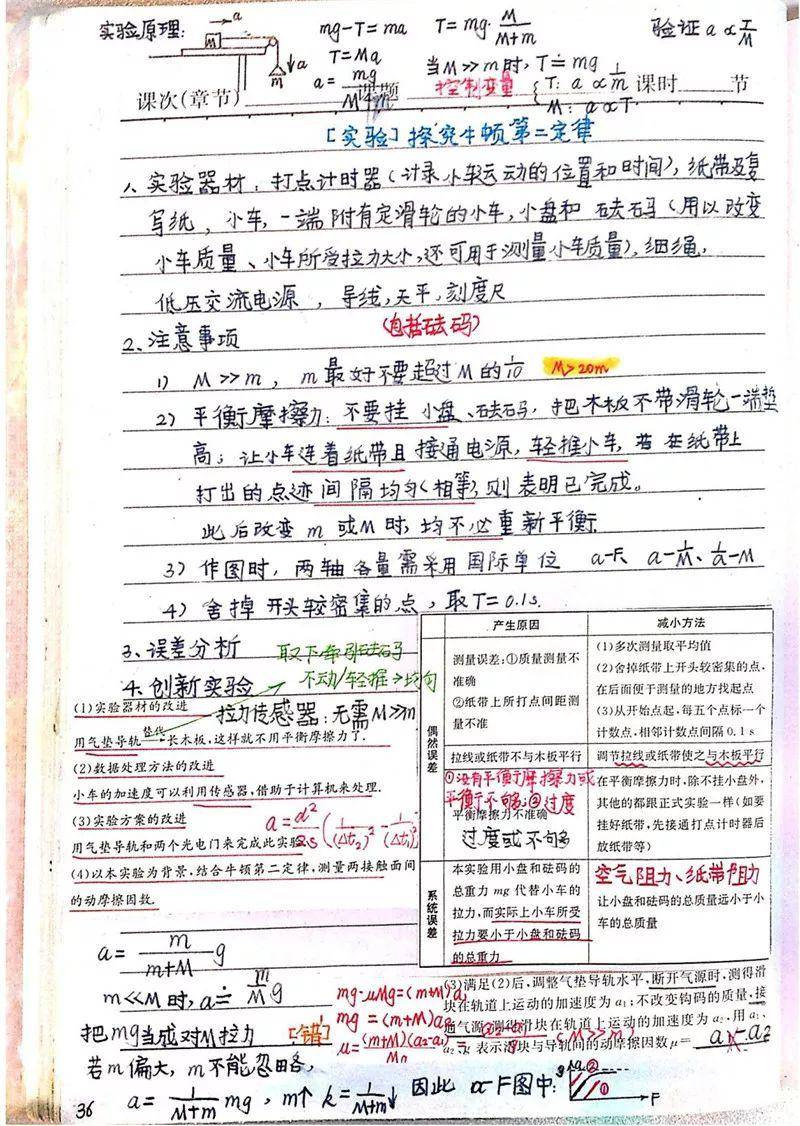 实验原理:
a
M
m
a
mg-T=ma
T=Ma
a=mg/(M+m)
T=mg·M/(M+m)
当M≫m时,T≐mg
验证a∝T/M
课次(章节) 课题 控制变量 { T: a∝1/m 课时 节
M: a∝T
[实验]探究牛顿第二定律
1、实验器材:打点计时器(计录小车运动的位置和时间),纸带及复
写纸,小车,一端附有定滑轮的小车,小盘和砝码(用以改变
小车质量、小车所受拉力大小,还可用于测量小车质量),细绳,
低压交流电源,导线,天平,刻度尺
(包括砝码)
2、注意事项
1) M≫m,m最好不要超过M的1/10 M>20m
2) 平衡摩擦力:不要挂小盘、砝码,把木板不带滑轮一端垫
高;让小车连着纸带且接通电源,轻推小车,若在纸带上
打出的点迹间隔均匀(相等)则表明已完成。
此后改变m或M时,均不必重新平衡
3) 作图时,两轴各量需采用国际单位 a-F、a-1/M、1/a-M
4) 舍掉开头较密集的点,取T=0.1s.
3、误差分析
取下牵引砝码
不动/轻推→均匀
4、创新实验
(1)实验器材的改进
拉力传感器:无需M≫m
用气垫导轨 替代 长木板,这样就不用平衡摩擦力了.
(2)数据处理方法的改进
小车的加速度可以利用传感器,借助于计算机来处理.
(3)实验方案的改进
a=d²/2s(1/(Δt₂)²-1/(Δt₁)²)
用气垫导轨和两个光电门来完成此实验.
(4)以本实验为背景,结合牛顿第二定律,测量两接触面间
的动摩擦因数.
产生原因 减小方法
偶然误差
测量误差:①质量测量不
准确
②纸带上所打点间距测
量不准
(1)多次测量取平均值
(2)舍掉纸带上开头较密集的点,
在后面便于测量的地方找起点
(3)从开始点起,每五个点标一个
计数点,相邻计数点间隔0.1 s
拉线或纸带不与木板平行
调节拉线或纸带使之与木板平行
①没有平衡摩擦力或
平衡不够;②过度
平衡摩擦力不准确
过度或不够
在平衡摩擦力时,除不挂小盘外,
其他的都跟正式实验一样(如要
挂好纸带,先接通打点计时器后
放纸带等)
系统误差
本实验用小盘和砝码的
总重力 mg 代替小车的
拉力,而实际上小车所受
拉力要小于小盘和砝码
的总重力
空气阻力、纸带阻力
让小盘和砝码的总质量远小于小
车的总质量
a=m/(m+M) g
m≪M时,a≐m/M g
把mg当成对M拉力 [错]
若m偏大,m不能忽略,
a=1/(M+m) mg,m↑ k=1/(M+m)↓ 因此 a-F图中:
a
②
①
F
mg-μMg=(m+M)a₁
mg=(m+M)a₂
μ=(m+M)(a₂-a₁)/Mg
(M≫m)
(3)满足(2)后,调整气垫导轨水平,断开气源时,测得滑
块在轨道上运动的加速度为a₁;不改变钩码的质量,接
通气源,测得滑块在轨道上运动的加速度为a₂,用a₁、
a₂、g 表示滑块与导轨间的动摩擦因数μ=
36